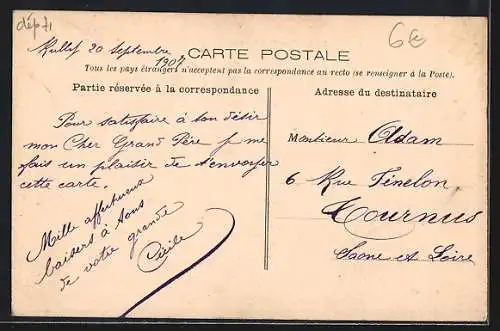 dépt 71
6€
Rully 20 Septembre
1904
CARTE POSTALE
Tous les pays étrangers n'acceptent pas la correspondance au recto (se renseigner à la Poste).
Partie réservée à la correspondance
Adresse du destinataire
Pour satisfaire à ton désir
mon Cher Grand Père je me
fais un plaisir de t'envoyer
cette carte.
Mille affectueux
baisers à tous
de votre grande
Cécile
Monsieur Adam
6 Rue Fénelon
Tournus
Saone et Loire